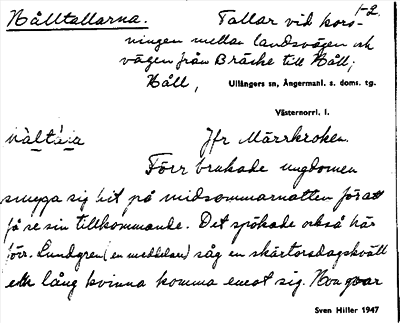 Hålltallarna. Tallar vid kors- 1-2.
ningen mellan landsvägen och
vägen från Bräcke till Håll;
Håll, Ullångers sn, Ångermanl. s. doms. tg.
Västernorrl. l.
Jfr Märrkroken.
Förr brukade ungdomen
smyga sig hit på midsommarnatten för att
få se sin tillkommande. Det spökade också här
förr. Lundgren (en meddelare) såg en skärtorsdagskväll
en lång kvinna komma emot sig. Hon var
Sven Hiller 1947